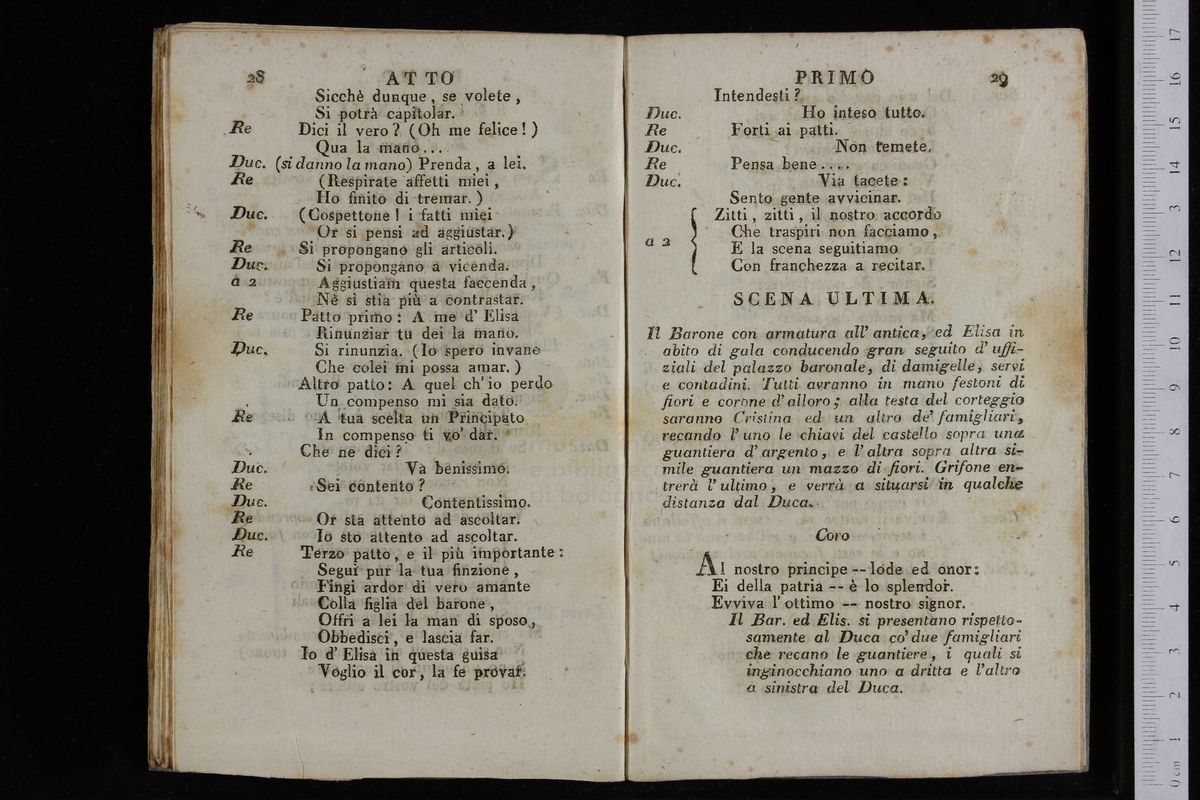 28 ATTO
Sicchè dunque, se volete,
Si potrà capitolar.
Re Dici il vero? (Oh me felice!)
Qua la mano...
Duc. (si danno la mano) Prenda, a lei.
Re (Respirate affetti miei,
Ho finito di tremar.)
Duc. (Cospettone! i fatti miei
Or si pensi ad aggiustar.)
Re Si propongano gli articoli.
Duc. Si propongano a vicenda.
a 2 Aggiustiam questa faccenda,
Nè si stia più a contrastar.
Re Patto primo: A me d' Elisa
Rinunziar tu dei la mano.
Duc. Si rinunzia. (Io spero invano
Che colei mi possa amar.)
Altro patto: A quel ch' io perdo
Un compenso mi sia dato.
Re A tua scelta un Principato
In compenso ti vo' dar.
Che ne dici?
Duc. Va benissimo.
Re Sei contento?
Duc. Contentissimo.
Re Or sta attento ad ascoltar.
Duc. Io sto attento ad ascoltar.
Re Terzo patto, e il più importante:
Segui pur la tua finzione,
Fingi ardor di vero amante
Colla figlia del barone,
Offri a lei la man di sposo,
Obbedisci, e lascia far.
Io d' Elisa in questa guisa
Voglio il cor, la fe provar.
PRIMO 29
Intendesti?
Duc. Ho inteso tutto.
Re Forti ai patti.
Duc. Non temete.
Re Pensa bene....
Duc. Via tacete:
Sento gente avvicinar.
Zitti, zitti, il nostro accordo
Che traspiri non facciamo,
a 2 E la scena seguitiamo
Con franchezza a recitar.
SCENA ULTIMA.
Il Barone con armatura all' antica, ed Elisa in
abito di gala conducendo gran seguito d' uffi-
ziali del palazzo baronale, di damigelle, servi
e contadini. Tutti avranno in mano festoni di
fiori e corone d' alloro; alla testa del corteggio
saranno Cristina ed un altro de' famigliari,
recando l' uno le chiavi del castello sopra una
guantiera d' argento, e l' altra sopra altra si-
mile guantiera un mazzo di fiori. Grifone en-
trerà l' ultimo, e verrà a situarsi in qualche
distanza dal Duca.
Coro
Al nostro principe -- lode ed onor:
Ei della patria -- è lo splendor.
Evviva l' ottimo -- nostro signor.
Il Bar. ed Elis. si presentano rispetto-
samente al Duca co' due famigliari
che recano le guantiere, i quali si
inginocchiano uno a dritta e l'altro
a sinistra del Duca.
17
16
15
14
13
12
11
10
9
8
7
6
5
4
3
2
1
0 cm